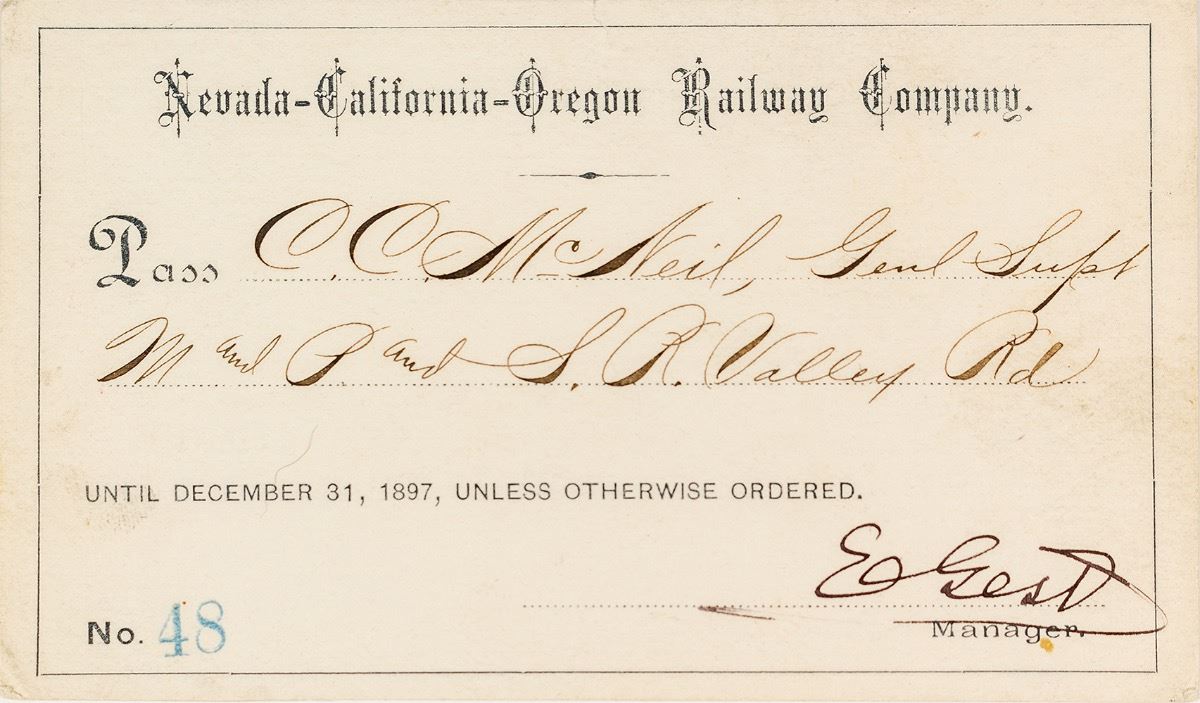 Nevada-California-Oregon Railway Company.
Pass C. C. McNeil, Genl Supt
M and P and S. R. Valley Rd
UNTIL DECEMBER 31, 1897, UNLESS OTHERWISE ORDERED.
E Gest
No. 48 Manager.